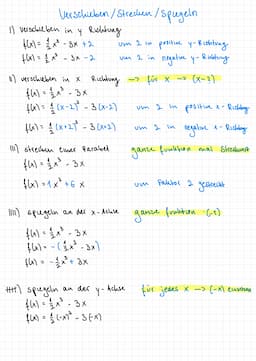 Verschieben/Strecken/Spiegeln
I) verschieben in y Richtung
f(x) = ½x³ - 3x + 2 um 2 in positive y-Richtung
f(x) = ½x³ - 3x - 2 um 2 in negative y-Richtung
II) verschieben in x Richtung → für x → (x-2)
f(x) = ½x³ - 3x
f(x) = ½(x-2)³ - 3(x-2) um 2 in positive x-Richtung
f(x) = ½(x+2)³ - 3(x+2) um 2 in negative x-Richtung
III) strecken einer Parabel ganze funktion mal Streckwert
f(x) = ½x³ - 3x
f(x) = 1x³ + 6x um Faktor 2 gestreckt
IIII) spiegeln an der x-Achse ganze funktion (-1)
f(x) = ½x³ - 3x
f(x) = -(½x³ - 3x)
f(x) = -½x³ + 3x
spiegeln an der y-Achse für jedes x → (-x) einsetzen
f(x) = ½x³ - 3x
f(x) = ½(-x)³ - 3(-x)